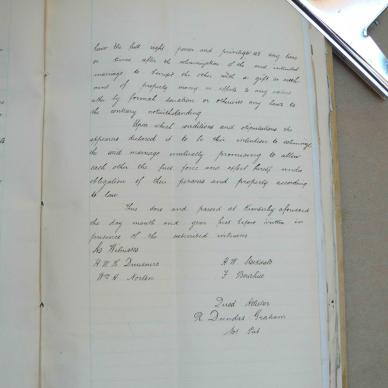 have the full right power and privilege at any time
or times after the solemnization of the said intended
marriage to benefit the other with a gift or settle
ment of property money or effects to any value
either by formal donation or otherwise any law to
the contrary notwithstanding
Upon which conditions and stipulations the
appearers declared it to be their intention to solemnize
the said marriage mutually promising to allow
each other the full force and effect hereof under
obligation of their persons and property according
to law
Thus done and passed at Kimberley aforesaid
the day month and year first before written in
presence of the subscribed witnesses
As Witnesses
A W
F
Wm H. Norton
Quod Attestor
R Dundas Graham
Not Pub